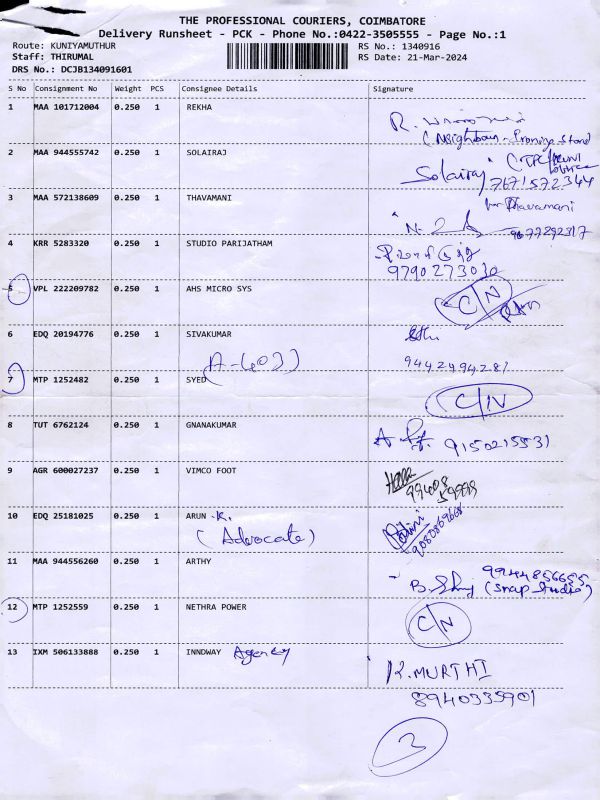 THE PROFESSIONAL COURIERS, COIMBATORE
Delivery Runsheet - PCK - Phone No.:0422-3505555 - Page No.:1
Route: KUNIYAMUTHUR RS No.: 1340916
Staff: THIRUMAL RS Date: 21-Mar-2024
DRS No.: DCJB134091601
S No Consignment No Weight PCS Consignee Details Signature
1 MAA 101712004 0.250 1 REKHA
2 MAA 944555742 0.250 1 SOLAIRAJ Solairaj
7671572344
3 MAA 572138609 0.250 1 THAVAMANI Thavamani
4 KRR 5283320 0.250 1 STUDIO PARIJATHAM
9790273030
5 VPL 222209782 0.250 1 AHS MICRO SYS C/N
6 EDQ 20194776 0.250 1 SIVAKUMAR
9442494281
7 MTP 1252482 0.250 1 SYED C/N
8 TUT 6762124 0.250 1 GNANAKUMAR 9150215531
9 AGR 600027237 0.250 1 VIMCO FOOT
10 EDQ 25181025 0.250 1 ARUN K.
(Advocate) 9080869668
11 MAA 944556260 0.250 1 ARTHY 9944856655
(Snap Studio)
12 MTP 1252559 0.250 1 NETHRA POWER C/N
13 IXM 506133888 0.250 1 INNDWAY Agency
K.MURTHI
8940335901
3